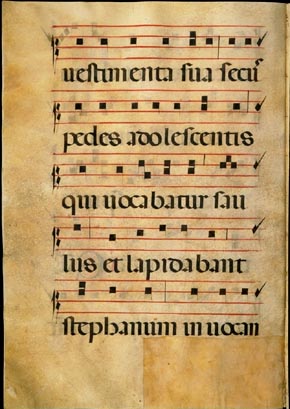 uestimenta sua secꝰ
pedes adolescentis
qui uocabatur sau
lus et lapidabant
stephanum in uocan